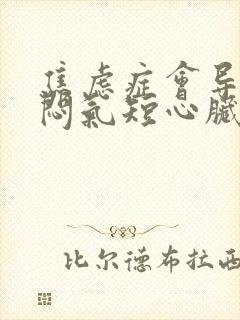 焦虑症會导
悶氣短心臟
比尔德布拉西